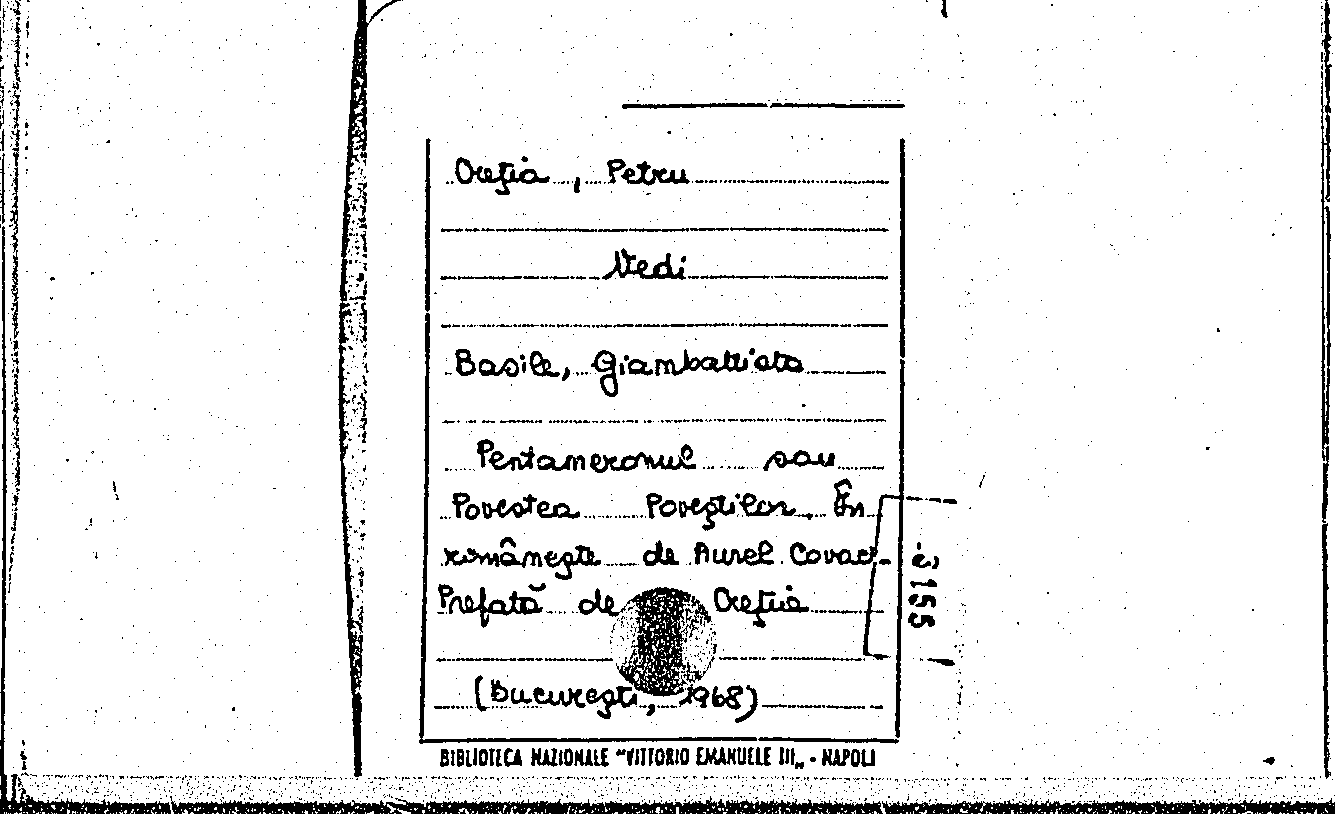 Oreţia, Petru
Vedi
Basile, Giambattista
Pentameronul sau
Povestea Poveştilor. În
româneşte de Aurel Covaci.
Prefată de Oreţia
(Bucureşti, 1968)
155
BIBLIOTECA NAZIONALE "VITTORIO EMANUELE III„ - NAPOLI